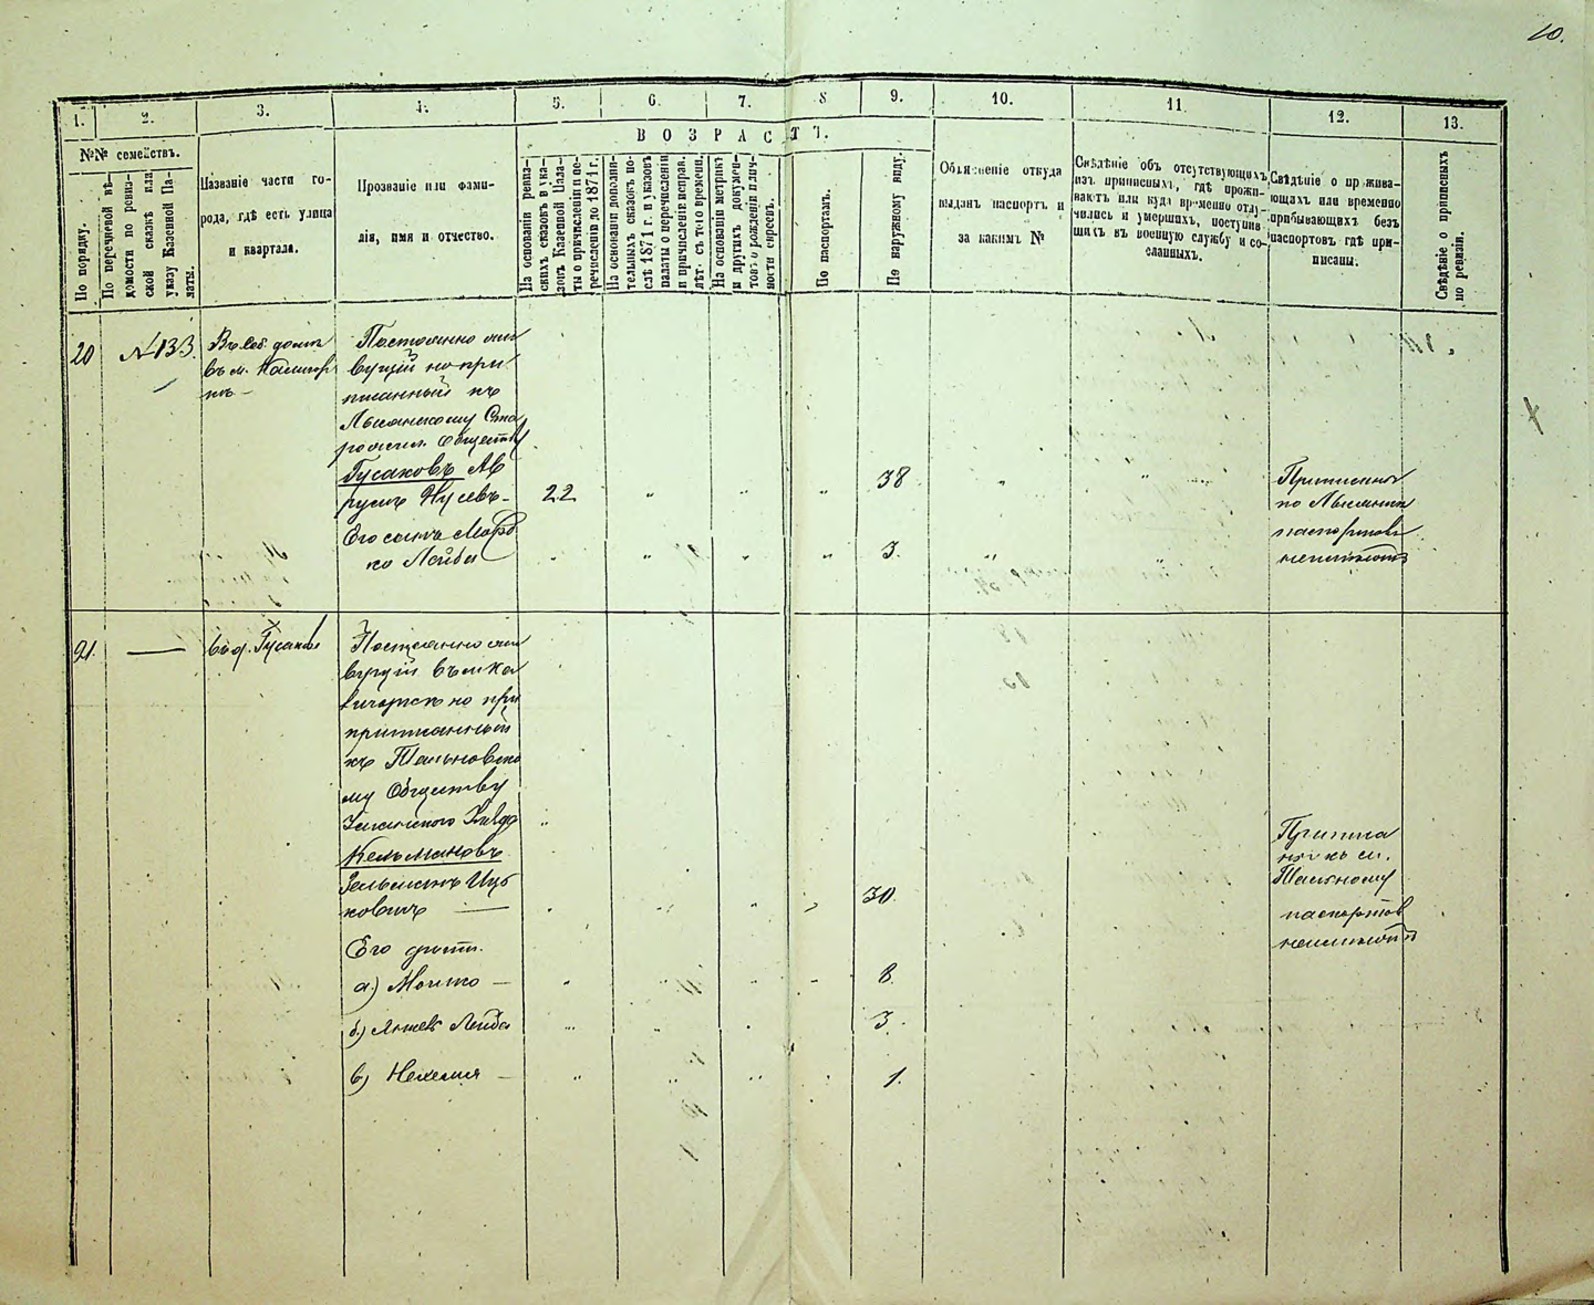 10.
1. 2. 3. 4. 5. 6. 7. 8 9. 10. 11. 12. 13.
ВОЗРАСТЪ.
№№ семействъ.
По порядку.
По перечневой вѣ-
домости по ревиз-
ской сказкѣ или
указу Казенной Па-
латы.
Названіе части го-
рода, гдѣ есть улица
и квартала.
Прозваніе или фами-
лія, имя и отчество.
На основаніи ревиз-
скихъ сказокъ и ука-
зовъ Казенной Пала-
ты о причисленіи и пе-
речисленіи до 1871 г.
На основаніи дополни-
тельныхъ сказокъ по-
слѣ 1871 г. и указовъ
палаты о перечисленіи
и причисленіе исправ.
лѣт. съ того времени.
На основаніи метрикъ
и другихъ докумен-
товъ о рожденіи и лич-
ности евреевъ.
По паспортамъ.
По наружному виду.
Объясненіе откуда
выданъ паспортъ и
за какимъ №
Свѣдѣніе объ отсутствующихъ
изъ приписныхъ, гдѣ прожи-
ваютъ или куда временно отлу-
чились и умершихъ, поступив-
шихъ въ военную службу и со-
сланныхъ.
Свѣдѣніе о прожива-
ющихъ или временно
прибывающихъ безъ
паспортовъ гдѣ при-
писаны.
Свѣдѣніе о приписныхъ
по ревизіи.
20 №133. Въ соб. домѣ Постоянно жи
вущій но при
писанный къ
Лысянскому
Гусаковъ Ав
румъ Нусевъ - 22 38
Его сынъ Мард
ко Лейба 3.
Приписанъ
по Лысянкѣ
паспортовъ
неимѣютъ
21. въ д. Гусакова Постоянно жи
вущій въ м Ка
но при
приписанный
къ Тальновско
му Обществу
Уманского Уѣзда
Кельмановъ
Зельманъ Иц
ковичъ 30.
Его дѣти.
а.) Мошко - 8.
б.) Лейба 3.
в) Нехемия - 1.
Приписа
нъ къ м.
Тальному
паспортов
неимѣютъ